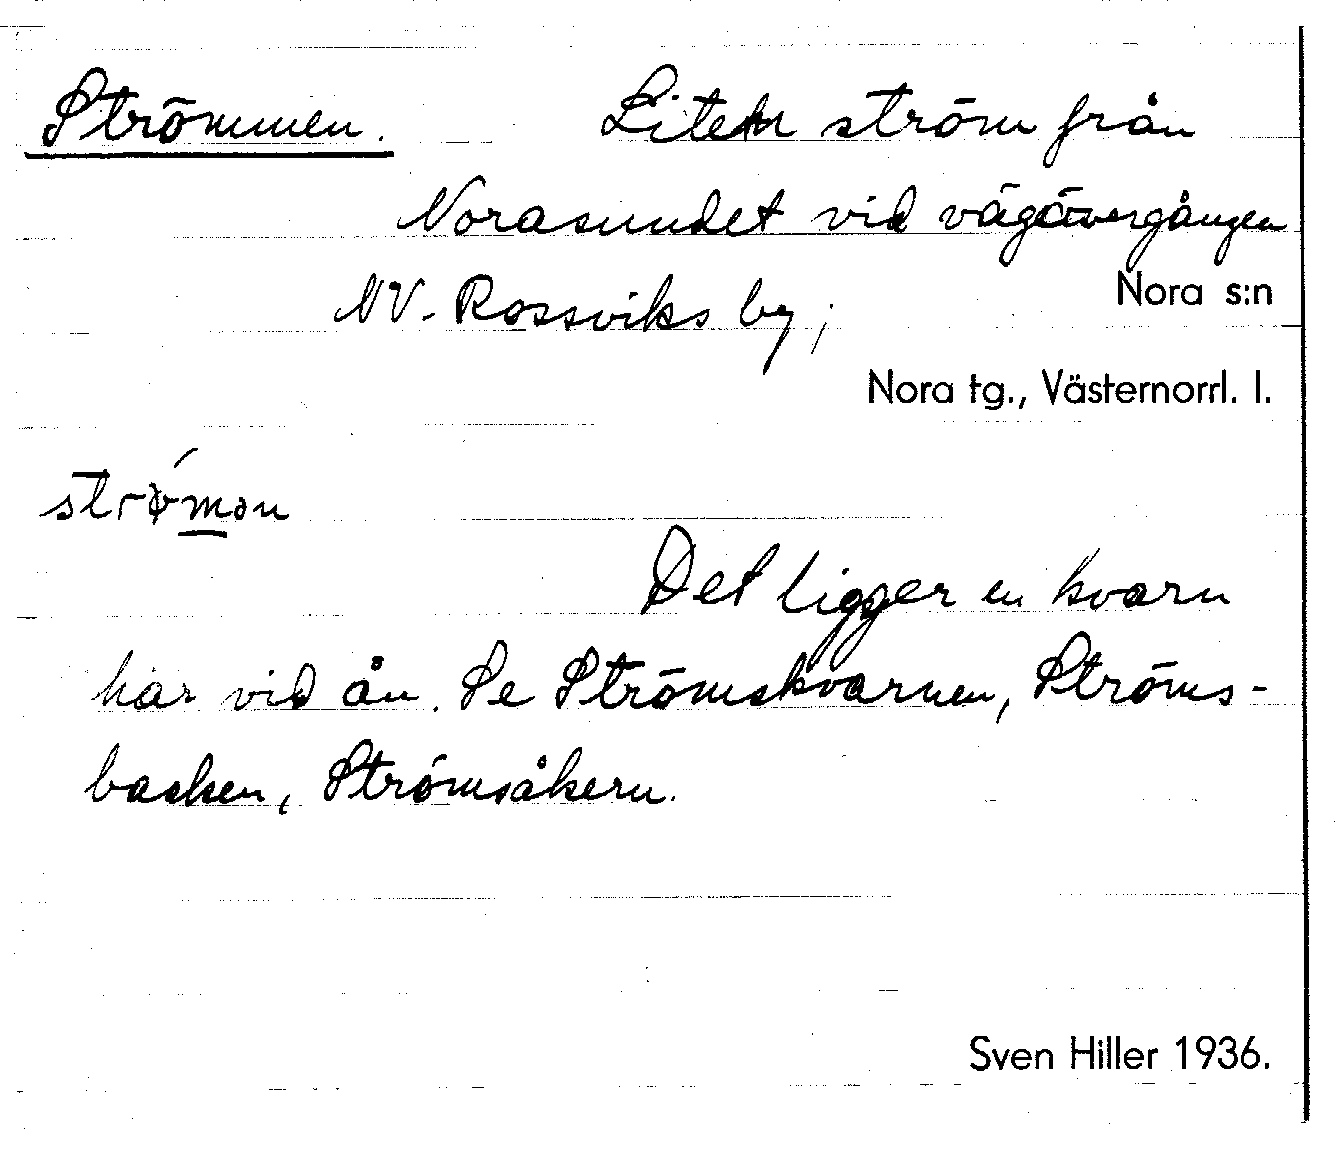 Strömmen. Liten ström från
Norasundet vid vägövergången
NV. Rossviks by;
Nora s:n
Nora tg., Västernorrl. l.
strǿmən
Det ligger en kvarn
här vid ån. Se Strömskvarnen, Ströms-
backen, Strömsåkern.
Sven Hiller 1936.